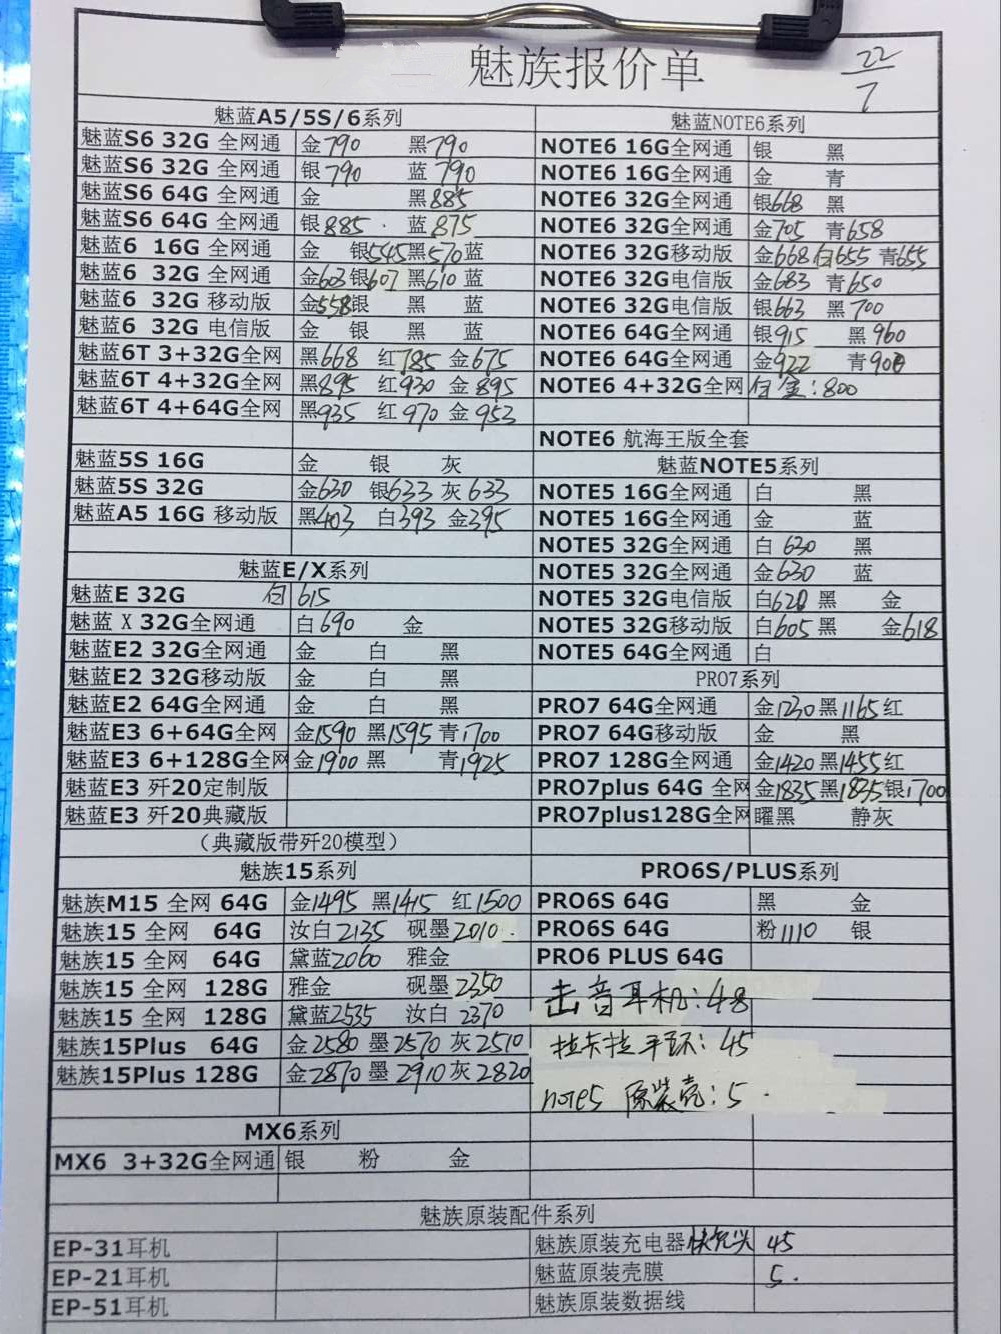 魅族报价单
22/7
魅蓝A5/5S/6系列
魅蓝S6 32G 全网通 金790 黑790
魅蓝S6 32G 全网通 银790 蓝790
魅蓝S6 64G 全网通 金 黑885
魅蓝S6 64G 全网通 银885 蓝875
魅蓝6 16G 全网通 金 银545黑570蓝
魅蓝6 32G 全网通 金603银607 黑610 蓝
魅蓝6 32G 移动版 金558银 黑 蓝
魅蓝6 32G 电信版 金 银 黑 蓝
魅蓝6T 3+32G全网 黑668 红785 金675
魅蓝6T 4+32G全网 黑895 红930 金895
魅蓝6T 4+64G全网 黑935 红970 金953
魅蓝5S 16G 金 银 灰
魅蓝5S 32G 金630 银633 灰633
魅蓝A5 16G 移动版 黑403 白393 金395
魅蓝E/X系列
魅蓝E 32G 白 615
魅蓝 X 32G全网通 白690 金
魅蓝E2 32G全网通 金 白 黑
魅蓝E2 32G移动版 金 白 黑
魅蓝E2 64G全网通 金 白 黑
魅蓝E3 6+64G全网 金1590 黑1595 青1700
魅蓝E3 6+128G全网 金1900 黑 青1925
魅蓝E3 歼20定制版
魅蓝E3 歼20典藏版
（典藏版带歼20模型）
魅族15系列
魅族M15 全网 64G 金1495 黑1415 红1500
魅族15 全网 64G 汝白2135 砚墨2010
魅族15 全网 64G 黛蓝2060 雅金
魅族15 全网 128G 雅金 砚墨2350
魅族15 全网 128G 黛蓝2535 汝白 2370
魅族15Plus 64G 金2580 墨2570 灰2510
魅族15Plus 128G 金2870 墨2910 灰2820
MX6系列
MX6 3+32G全网通 银 粉 金
魅蓝NOTE6系列
NOTE6 16G全网通 银 黑
NOTE6 16G全网通 金 青
NOTE6 32G全网通 银668 黑
NOTE6 32G全网通 金705 青658
NOTE6 32G移动版 金668 白655 青655
NOTE6 32G电信版 金683 青650
NOTE6 32G电信版 银663 黑700
NOTE6 64G全网通 银915 黑960
NOTE6 64G全网通 金922 青900
NOTE6 4+32G全网 白金:800
NOTE6 航海王版全套
魅蓝NOTE5系列
NOTE5 16G全网通 白 黑
NOTE5 16G全网通 金 蓝
NOTE5 32G全网通 白 630 黑
NOTE5 32G全网通 金630 蓝
NOTE5 32G电信版 白620 黑 金
NOTE5 32G移动版 白605 黑 金618
NOTE5 64G全网通 白
PRO7系列
PRO7 64G全网通 金1230 黑1165红
PRO7 64G移动版 金 黑
PRO7 128G全网通 金1420 黑1455红
PRO7plus 64G 全网 金1835黑1835银1700
PRO7plus128G全网 曜黑 静灰
PRO6S/PLUS系列
PRO6S 64G 黑 金
PRO6S 64G 粉1110 银
PRO6 PLUS 64G
击音耳机:48
拉卡拉手环:45
note5 原装壳:5
魅族原装配件系列
EP-31耳机
EP-21耳机
EP-51耳机
魅族原装充电器快充头 45
魅蓝原装壳膜 5.
魅族原装数据线